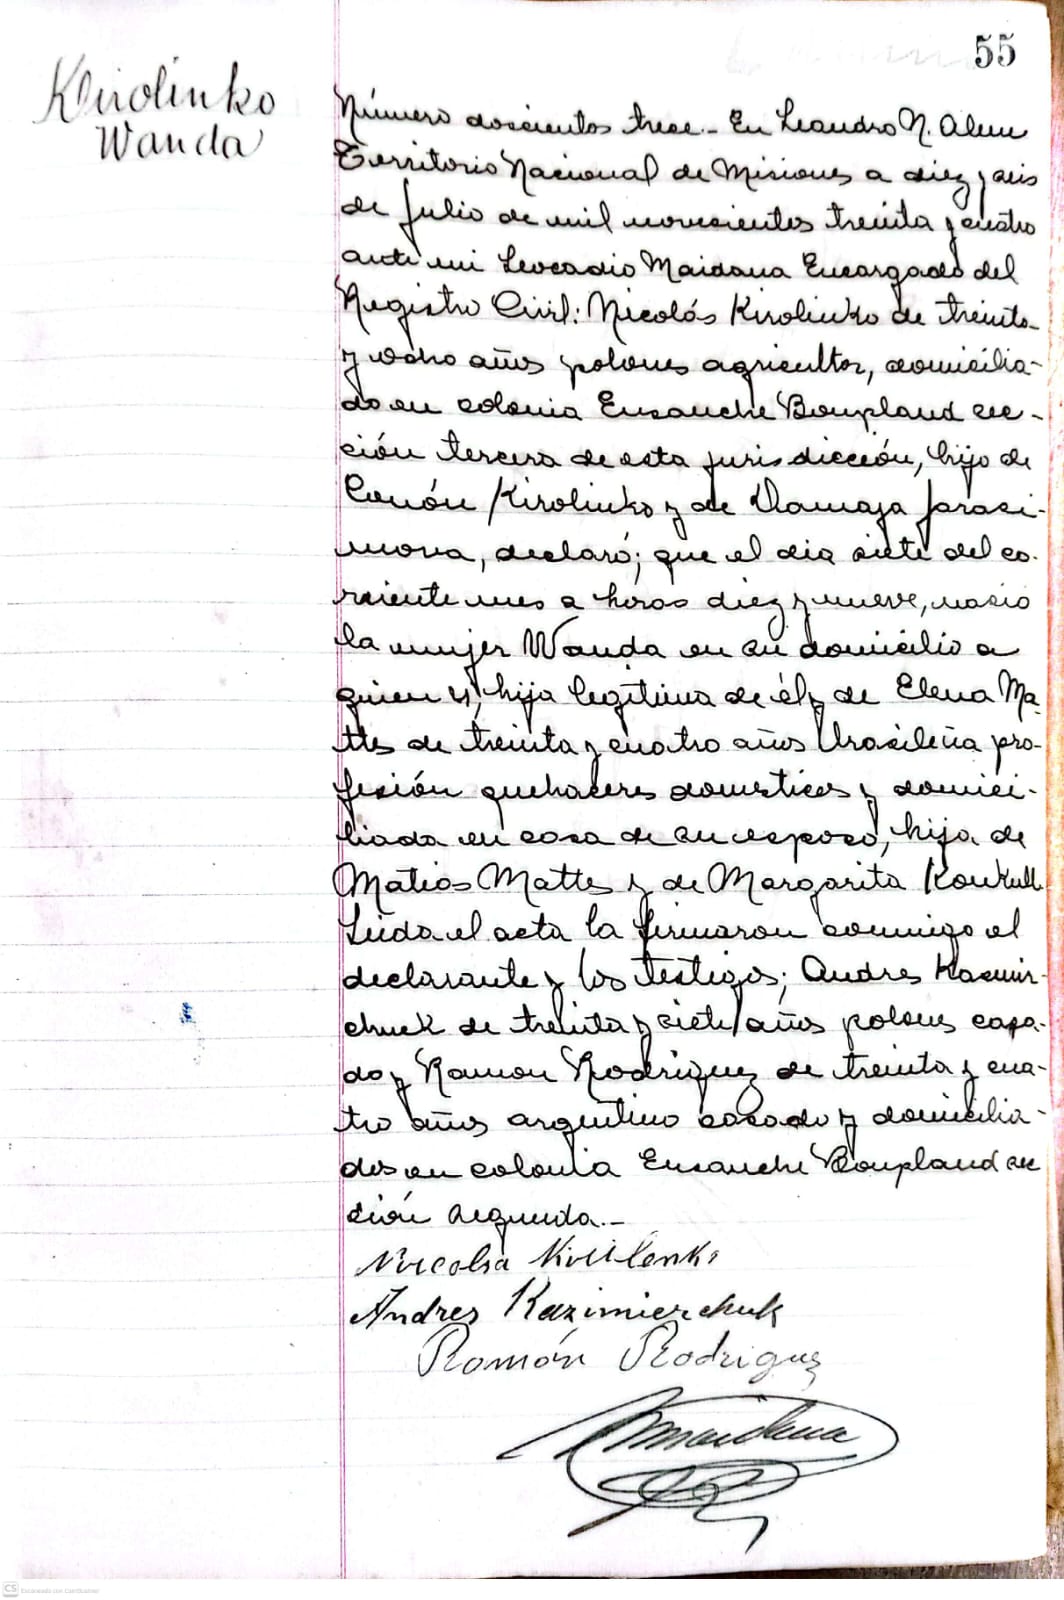 55
Kirolinko
Wanda
Número doscientos trese.- En Leandro N. Alem
Territorio Nacional de Misiones a diez y seis
de Julio de mil novesientos treinta y cuatro
ante mi Leocadio Maidana Encargado del
Registro Civil: Nicolás Kirolinko de treinta
y ocho años polones agricultor, domicilia-
do en colonia Ensanche Bonpland sec-
ción tercera de esta jurisdicción, hijo de
Conón Kirolinko y de Damaja Jarasi-
mova, declaró; que el dia siete del co-
rriente mes a horas diez y nueve, nasio
la mujer Wanda en su domicilio a
quien vi, hija legítima de él y de Elena Ma-
ttes de treinta y cuatro años brasileña pro-
fesión quehaceres domesticos y domici-
liada en casa de su esposo, hija de
Matias Mattes y de Margarita Konkull
Leida el acta la firmaron conmigo el
declarante y los testigos; Andres Kasmir-
chuck de treinta y siete años polones casa-
do y Ramon Rodriguez de treinta y cua-
tro años argentino casado y domicilia-
dos en colonia Ensanche Bonpland sec
ción segunda.-
Andres Kazimierchuk
Román Rodriguez
Maidana
CS Escaneado con CamScanner